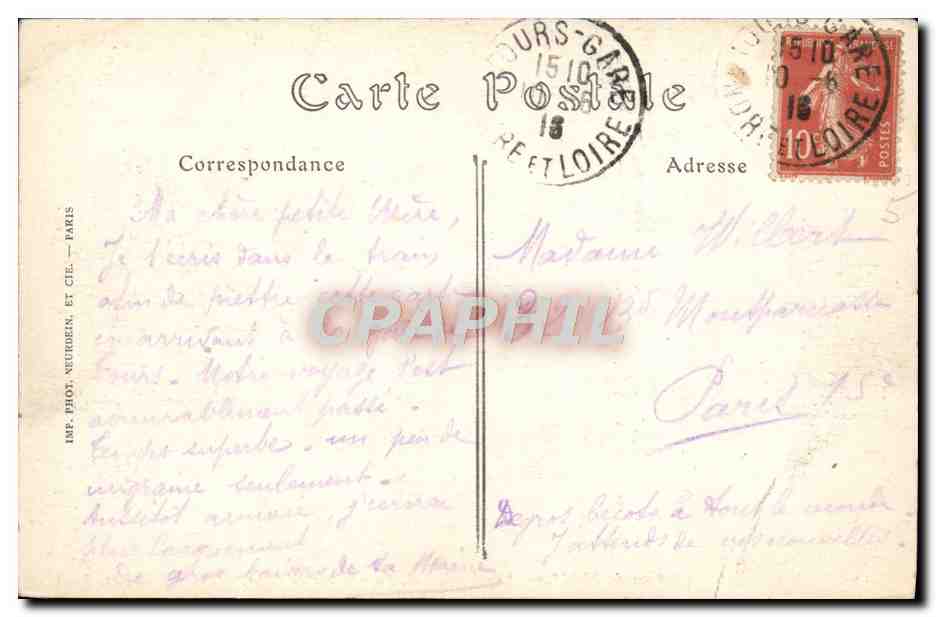 Carte Postale
TOURS-GARE
15 10
10 -6
16
INDRE ET LOIRE
TOURS-GARE
15 10
10 -6
16
INDRE ET LOIRE
10c
POSTES
5
Correspondance
Adresse
IMP. PHOT. NEURDEIN. ET CIE. — PARIS
Ma chère petite
Je t'écris dans le train
afin de mettre cette carte
en arrivant à
Tours. Notre voyage s'est
admirablement passé.
Temps superbe. un peu de
migraine seulement.
Aussitôt arrivée, j'écrirai
plus longuement
De gros baisers de ta
Madame Wilbert
Montparnasse
Paris 15e
De gros bécots à tout le monde
J'attends de vos nouvelles.
CPAPHIL